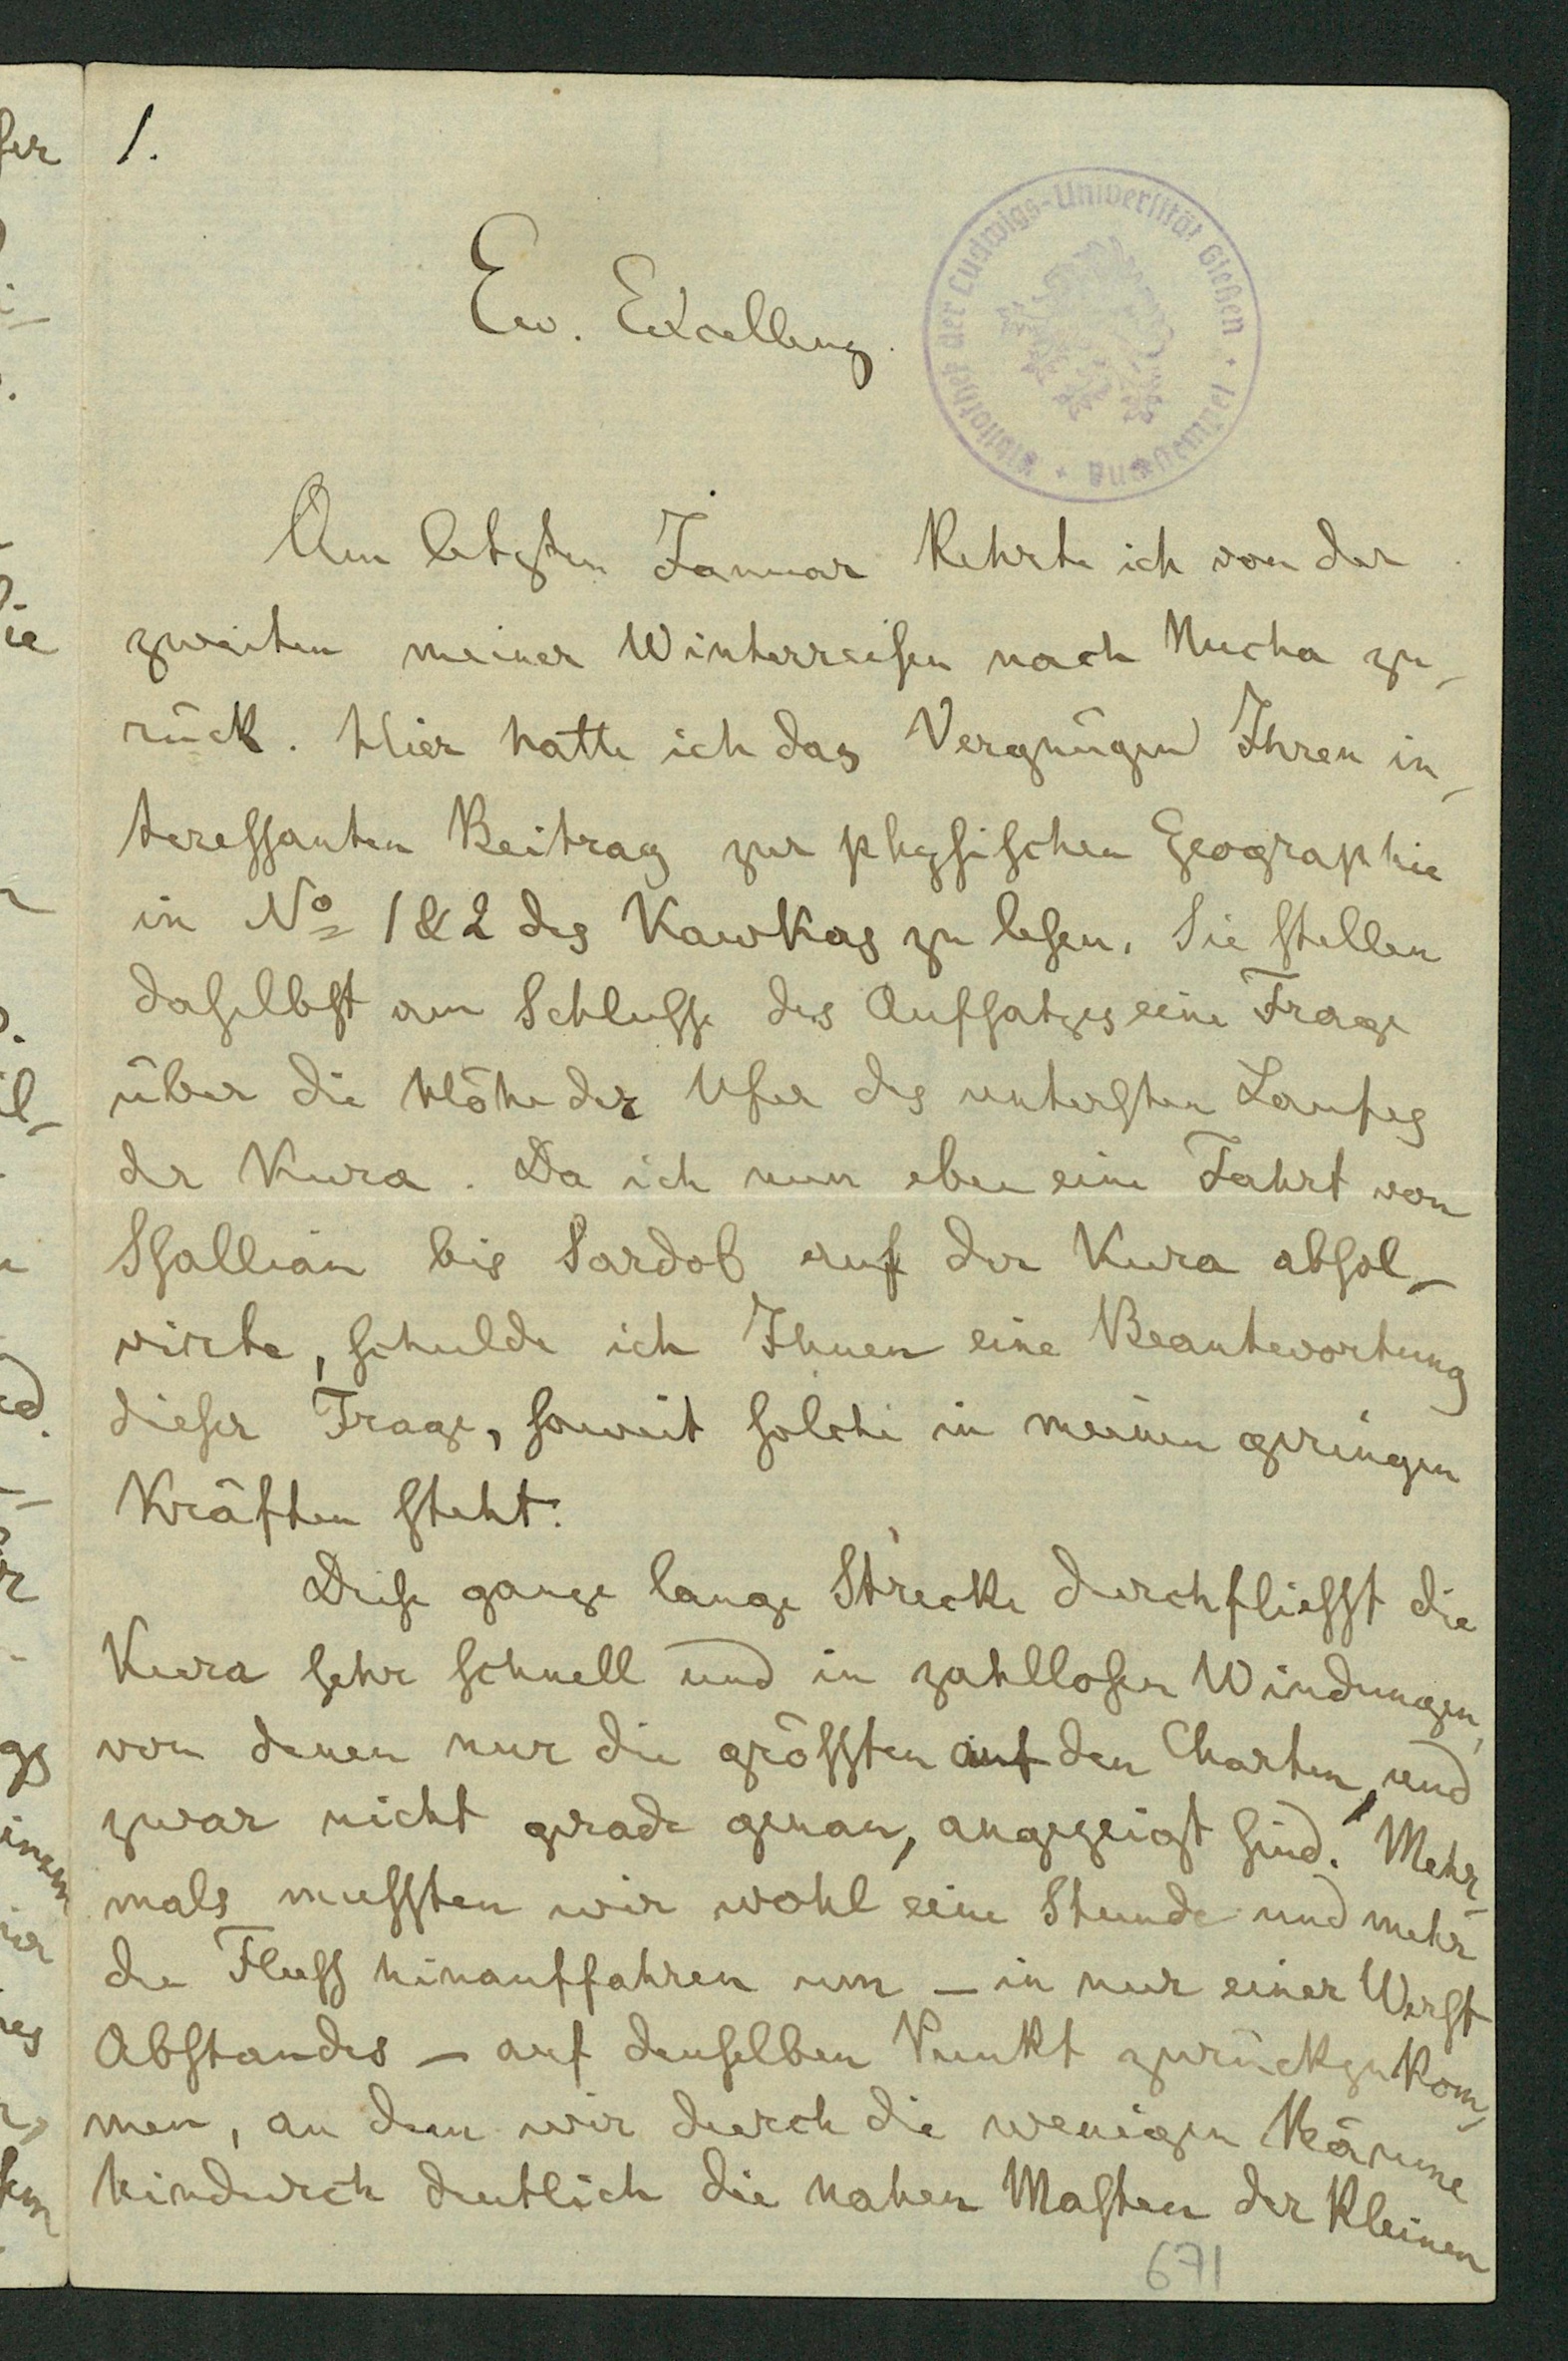 1.
Ew. Excellenz.
Am letzten Januar kehrte ich von der
zweiten meiner Winterreisen nach Nucha zu-
rück. Hier hatte ich das Vergnügen Ihren in-
teressanten Beitrag zur physischen Geographie
in No 1 & 2 des Kawkas zu lesen. Sie stellen
daselbst am Schlusse des Aufsatzes eine Frage
über die Höhe der Ufer des untersten Laufes
der Kura. Da ich nun eben eine Fahrt von
Ssallian bis Sardob auf der Kura absol-
virte, schulde ich Ihnen eine Beantwortung
dieser Frage, soweit solche in meinen geringen
Kräften steht.
Diese ganze lange Strecke durchfliesst die
Kura sehr schnell und in zahllosen Windungen,
von denen nur die grössten auf den Charten, und
zwar nicht gerade genau, angezeigt sind. Mehr-
mals mussten wir wohl eine Stunde und mehr
den Fluss hinauffahren um – in nur einer Werst
Abstandes – auf denselben Punkt zurückzukom-
men, an dem wir durch die wenigen Bäume
hindurch deutlich die nahen Masten der kleinen
671
Bibliothek der Ludwigs-Universität Gießen